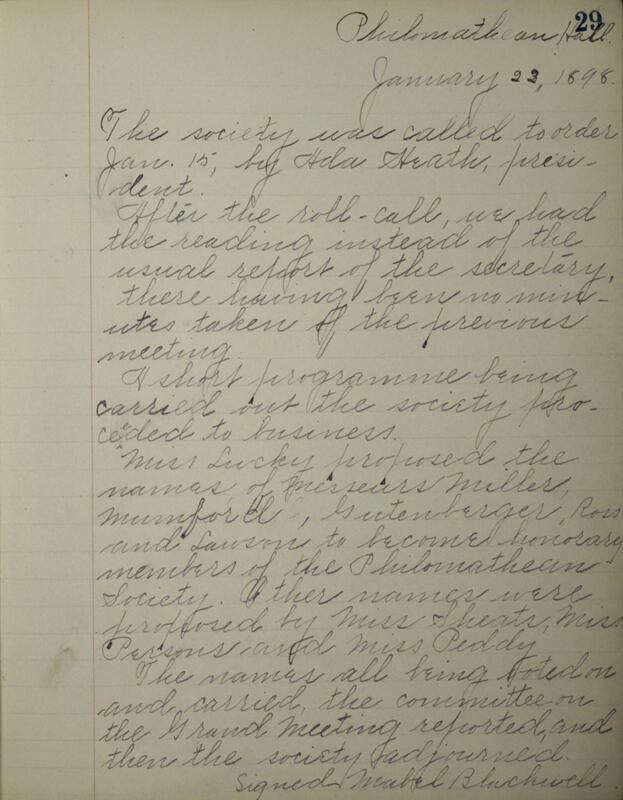 29
Philomathean Hall.
January 23, 1898.
The society was called to order
Jan. 15, by Ada Heath, presi-
dent.
After the roll-call, we had
the reading instead of the
usual report of the secretary,
there having been no min-
utes taken of the previous
meeting.
A short programme being
carried out the society pro-
ceeded to business.
Miss Lucky proposed the
names of Messears Miller,
Mumford, Gutenberger, Ross
and Lawson to become honorary
members of the Philomathean
Society. Other names were
proposed by Miss Sheats, Miss
Persons and Miss Peddy
The names all being voted on
and carried, the committee on
the Grand Meeting reported, and
then the society adjourned.
Signed Mabel Blackwell